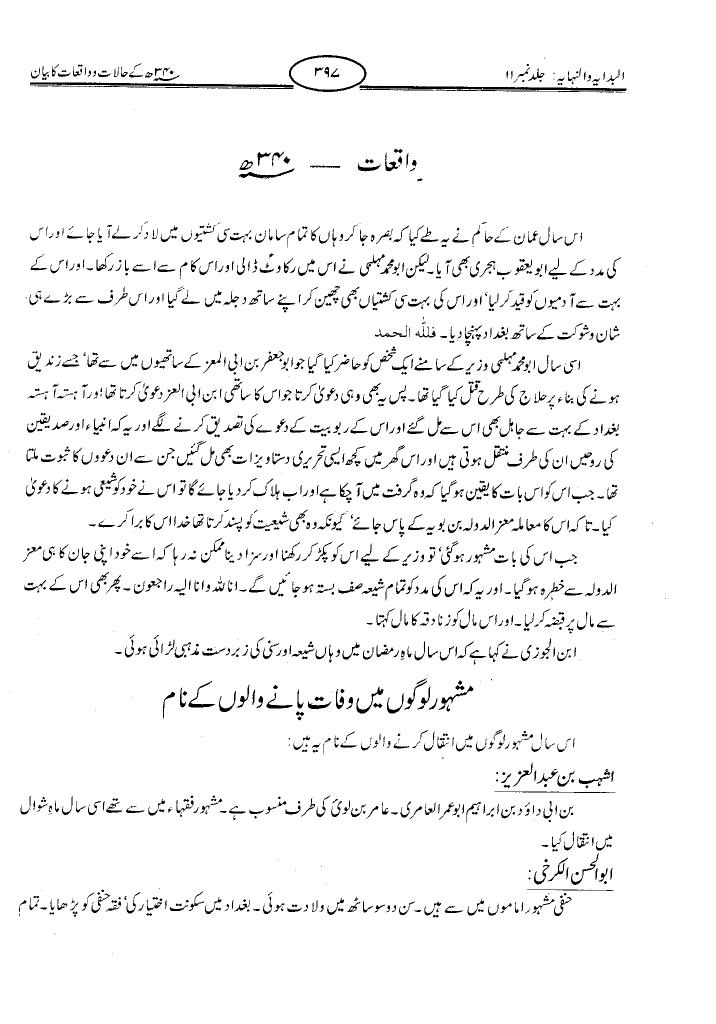 البدایہ والنہایہ: جلد نمبر ۱۱
۳۹۷
۳۴۰ھ کے حالات و واقعات کا بیان
واقعات — ۳۴۰ھ
اس سال عمان کے حاکم نے یہ طے کیا کہ بصرہ جا کر وہاں کا تمام سامان بہت سی کشتیوں میں لاد کر لے آیا جائے اور اس
کی مدد کے لیے ابو یعقوب ہجری بھی آیا۔ لیکن ابو محمد مہلمی نے اس میں رکاوٹ ڈالی اور اس کام سے اسے باز رکھا۔ اور اس کے
بہت سے آدمیوں کو قید کر لیا‘ اور اس کی بہت سی کشتیاں بھی چھین کر اپنے ساتھ دجلہ میں لے گیا اور اس طرف سے بڑے ہی
شان و شوکت کے ساتھ بغداد پہنچا دیا۔ فللّٰہ الحمد
اسی سال ابو محمد مہلمی وزیر کے سامنے ایک شخص کو حاضر کیا گیا جو ابو جعفر بن ابی المعز کے ساتھیوں میں سے تھا‘ جسے زندیق
ہونے کی بناء پر حلاج کی طرح قتل کیا گیا تھا۔ پس یہ بھی وہی دعویٰ کرتا جو اس کا ساتھی ابن ابی العز دعویٰ کرتا تھا‘ اور آہستہ آہستہ
بغداد کے بہت سے جاہل بھی اس سے مل گئے اور اس کے ربوبیت کے دعوے کی تصدیق کرنے لگے اور یہ کہ انبیاء اور صدیقین
کی روحیں ان کی طرف منتقل ہوتی ہیں اور اس گھر میں کچھ ایسی تحریری دستاویزات بھی مل گئیں جن سے ان دعووں کا ثبوت ملتا
تھا۔ جب اس کو اس بات کا یقین ہو گیا کہ وہ گرفت میں آ چکا ہے اور اب ہلاک کر دیا جائے گا تو اس نے خود کو شیعی ہونے کا دعویٰ
کیا۔ تا کہ اس کا معاملہ معز الدولہ بن بویہ کے پاس جائے‘ کیونکہ وہ بھی شیعیت کو پسند کرتا تھا خدا اس کا برا کرے۔
جب اس کی بات مشہور ہو گئی‘ تو وزیر کے لیے اس کو پکڑ کر رکھنا اور سزا دینا ممکن نہ رہا کہ اسے خود اپنی جان کا ہی معز
الدولہ سے خطرہ ہو گیا۔ اور یہ کہ اس کی مدد کو تمام شیعہ صف بستہ ہو جائیں گے۔ انا للہ وانا الیہ راجعون۔ پھر بھی اس کے بہت
سے مال پر قبضہ کر لیا۔ اور اس مال کو زنادقہ کا مال کہتا۔
ابن الجوزی نے کہا ہے کہ اس سال ماہِ رمضان میں وہاں شیعہ اور سنی کی زبردست مذہبی لڑائی ہوئی۔
مشہور لوگوں میں وفات پانے والوں کے نام
اس سال مشہور لوگوں میں انتقال کرنے والوں کے نام یہ ہیں:
اشہب بن عبدالعزیز:
بن ابی داؤد بن ابراہیم ابو عمر العامری۔ عامر بن لوئ کی طرف منسوب ہے۔ مشہور فقہاء میں سے تھے اسی سال ماہِ شوال
میں انتقال کیا۔
ابوالحسن الکرخی:
حنفی مشہور اماموں میں سے ہیں۔ سن دو سو ساٹھ میں ولادت ہوئی۔ بغداد میں سکونت اختیار کی‘ فقہ حنفی کو پڑھایا۔ تمام